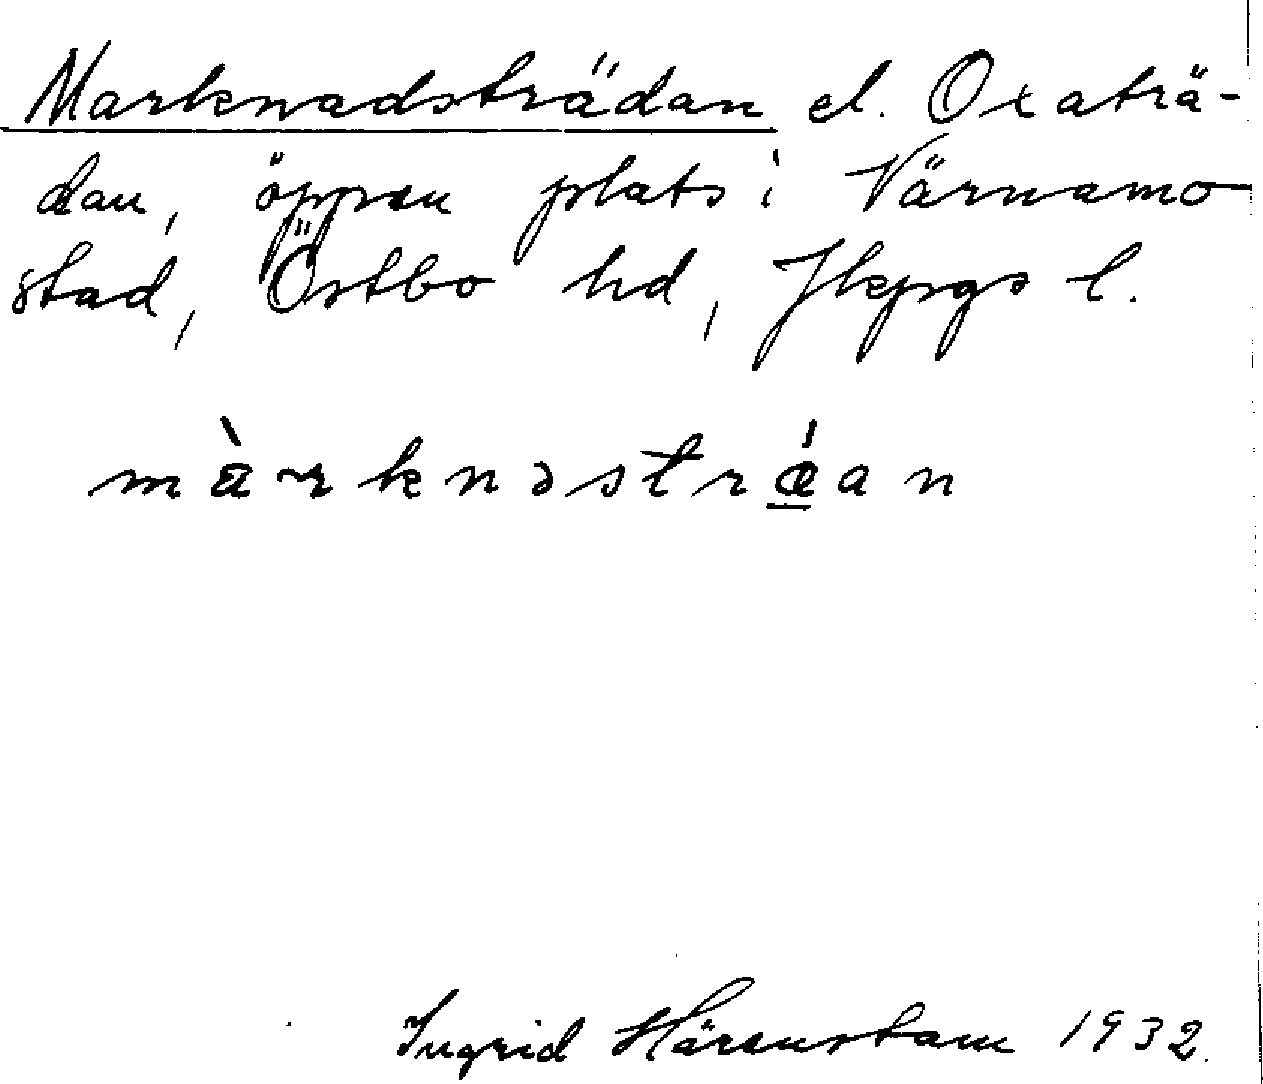 Marknadsträdan el. Oxaträ-
dan, öppen plats i Värnamo
stad, Östbo hd, Jkpgs l.
màrknəstrǽan
Ingrid Härenstam 1932.